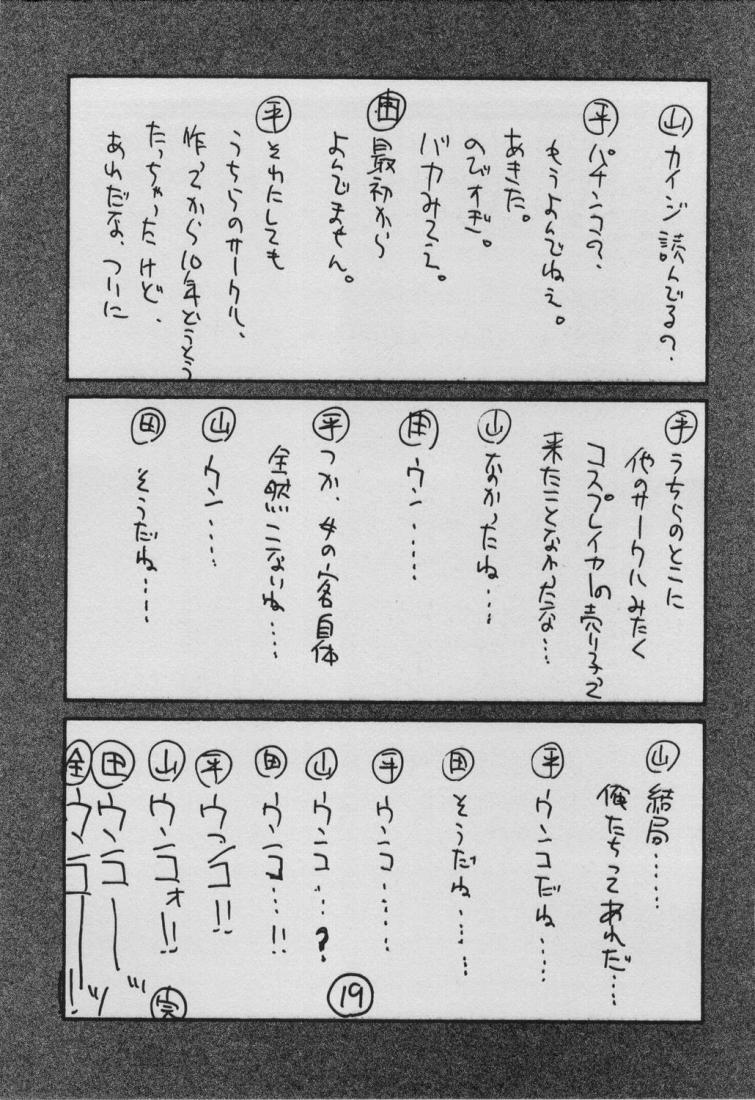 山 カイジ読んでるの?
平 パチンコの?
もうよんでねえ。
あきた。
のびすぎ。
バカみてえ。
田 最初から
よんでません。
平 それにしても
うちらのサークル、
作ってから10年どうとう
たっちゃったけど、
あれだな、ついに
平 うちらのとこに
他のサークルみたく
コスプレイヤーの売り子って
来たことなかったな…
山 なかったね…
田 ウン……
平 つか、女の客自体
全然こないね……
山 ウン……
田 そうだね……
山 結局……
俺たちってあれだ…
平 ウンコだね……
田 そうだね……
平 ウンコ……
山 ウンコ…?
田 ウンコ…!!
平 ウンコ!!
山 ウンコォ!!
田 ウンコーッ
全 ウンコーッ!
完
19